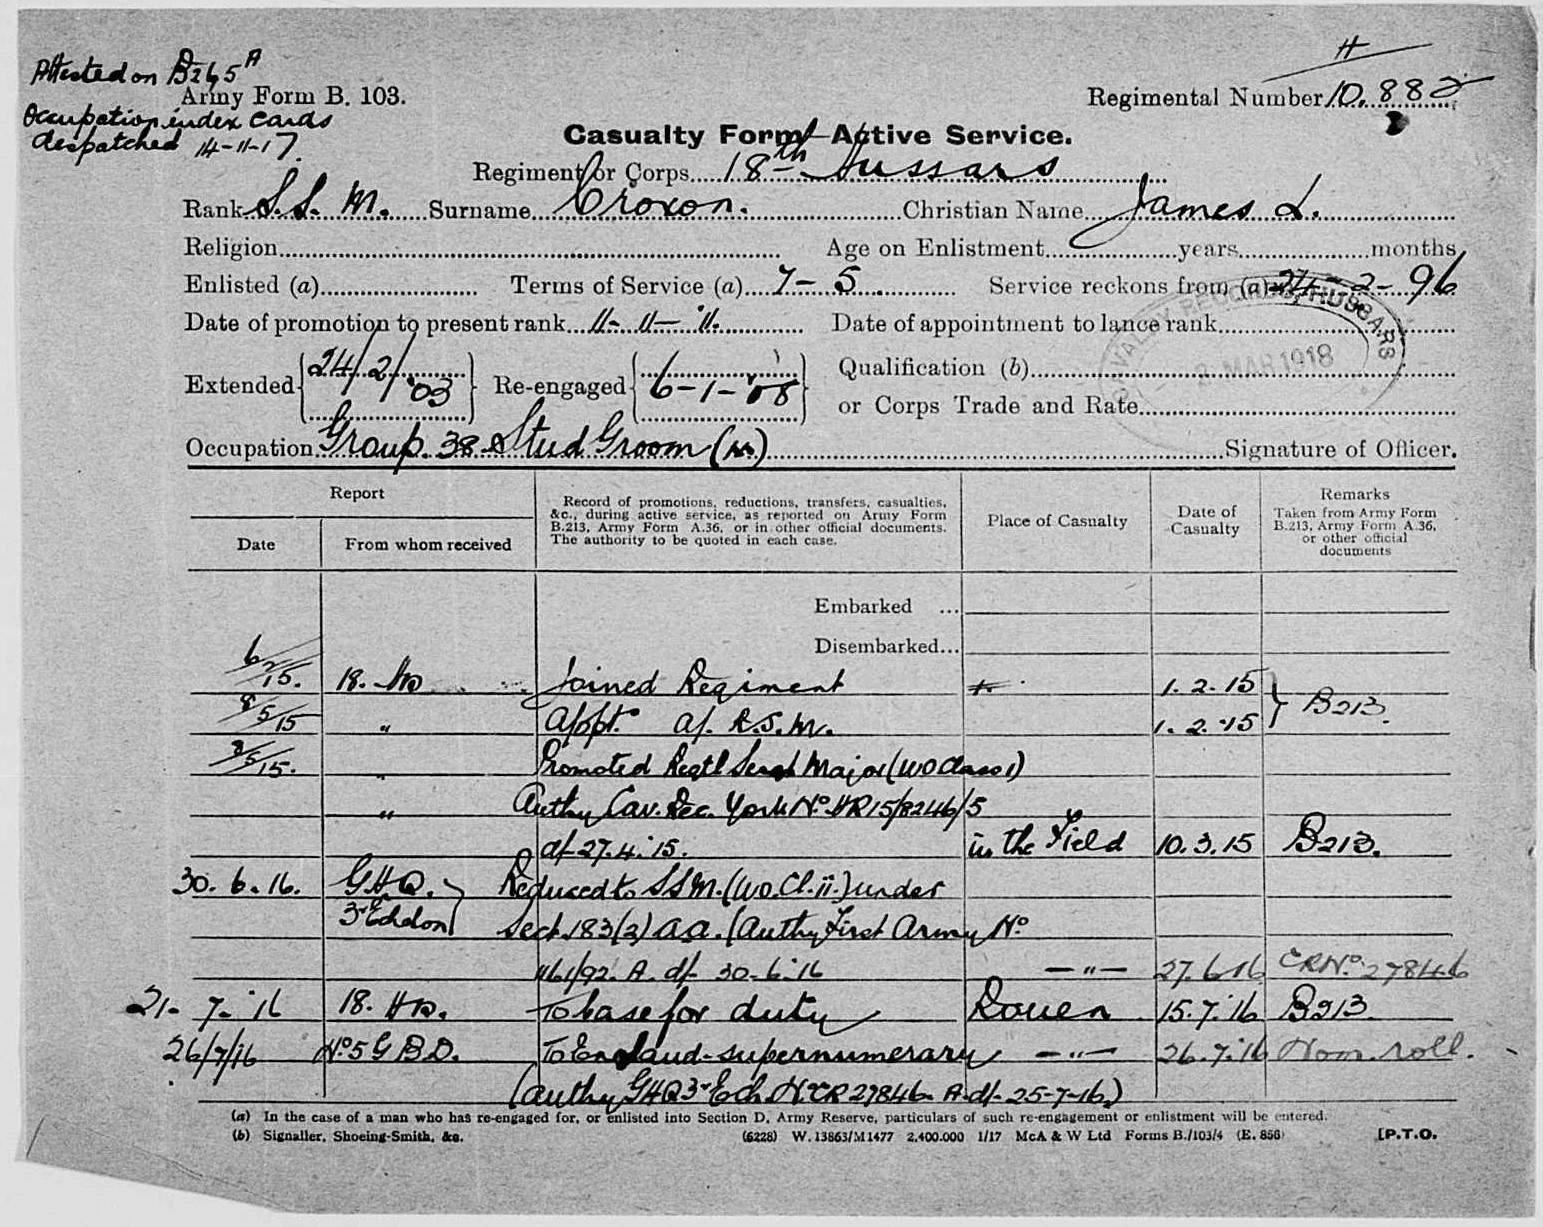 Attested on B265A
Army Form B. 103.
Occupation index cards
despatched 14-11-17.
H
Regimental Number 10.882
Casualty Form—Active Service.
Regiment or Corps 18th Hussars
Rank S.S.M. Surname Croxon. Christian Name James L.
Religion Age on Enlistment years months
Enlisted (a) Terms of Service (a) 7-5. Service reckons from (a) 24-2-96
Date of promotion to present rank 11-11-'11. Date of appointment to lance rank
CAVALRY RECORDS, HUSSARS
2 MAR 1918
Extended 24/2/'03 Re-engaged 6-1-'08 Qualification (b)
or Corps Trade and Rate
Occupation Group. 38 Stud Groom Signature of Officer.
Report
Date
From whom received
Record of promotions, reductions, transfers, casualties,
&c., during active service, as reported on Army Form
B.213, Army Form A.36, or in other official documents.
The authority to be quoted in each case.
Place of Casualty
Date of
Casualty
Remarks
Taken from Army Form
B.213, Army Form A.36,
or other official
documents
Embarked ...
Disembarked...
6/2/15. 18. Hrs Joined Regiment 1.2.15
8/5/15 " Appt. a/. R.S.M. 1.2.15 B213.
8/5/15. " Promoted Regtl Sergt Major (WO Class 1)
" Authy Cav. Rec. York No. HR15/8246/5
d/- 27.4.15. in the Field 10.3.15 B213.
30.6.16. G.H.Q. Reduced to S.S.M. (W.O. Cl. ii.) under
3rd Echelon Sect. 183(2) A.A. (Authy First Army No
1161/92. A. d/- 30-6-16 —"— 27.6.16 CR No. 27846
21-7-'16 18. Hrs. To base for duty Rouen 15.7.'16 B213.
26/7/16 No. 5 G B.D. To England-supernumerary —"— 26.7.'16 Nom. roll.
(Authy GHQ 3rd Ech. No. CR 27846. A. d/- 25-7-16.)
(a) In the case of a man who has re-engaged for, or enlisted into Section D, Army Reserve, particulars of such re-engagement or enlistment will be entered.
(b) Signaller, Shoeing-Smith, &c. (6228) W. 13863/M1477 2,400,000 1/17 McA & W Ltd Forms B./103/4 (E. 856) [P.T.O.